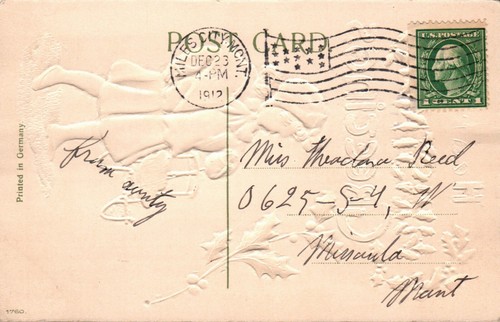 POST CARD.
MILES CITY, MONT.
DEC 23
4-PM
1912
U.S. POSTAGE
1 CENT 1
Printed in Germany
From aunty
Miss Theodora Reed
0625-S-4, W
Missoula
Mont
1760.